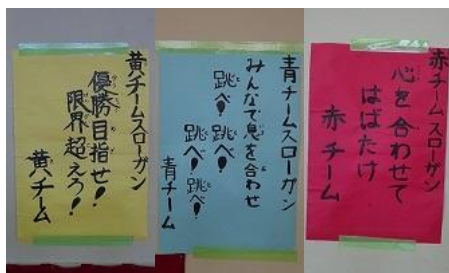 黄チームスローガン
優勝目指せ!
限界超えろ!
黄チーム
青チームスローガン
みんなで息を合わせ
跳べ!
跳べ!
跳べ!
跳べ!
青チーム
赤チームスローガン
心を合わせて
はばたけ
赤チーム